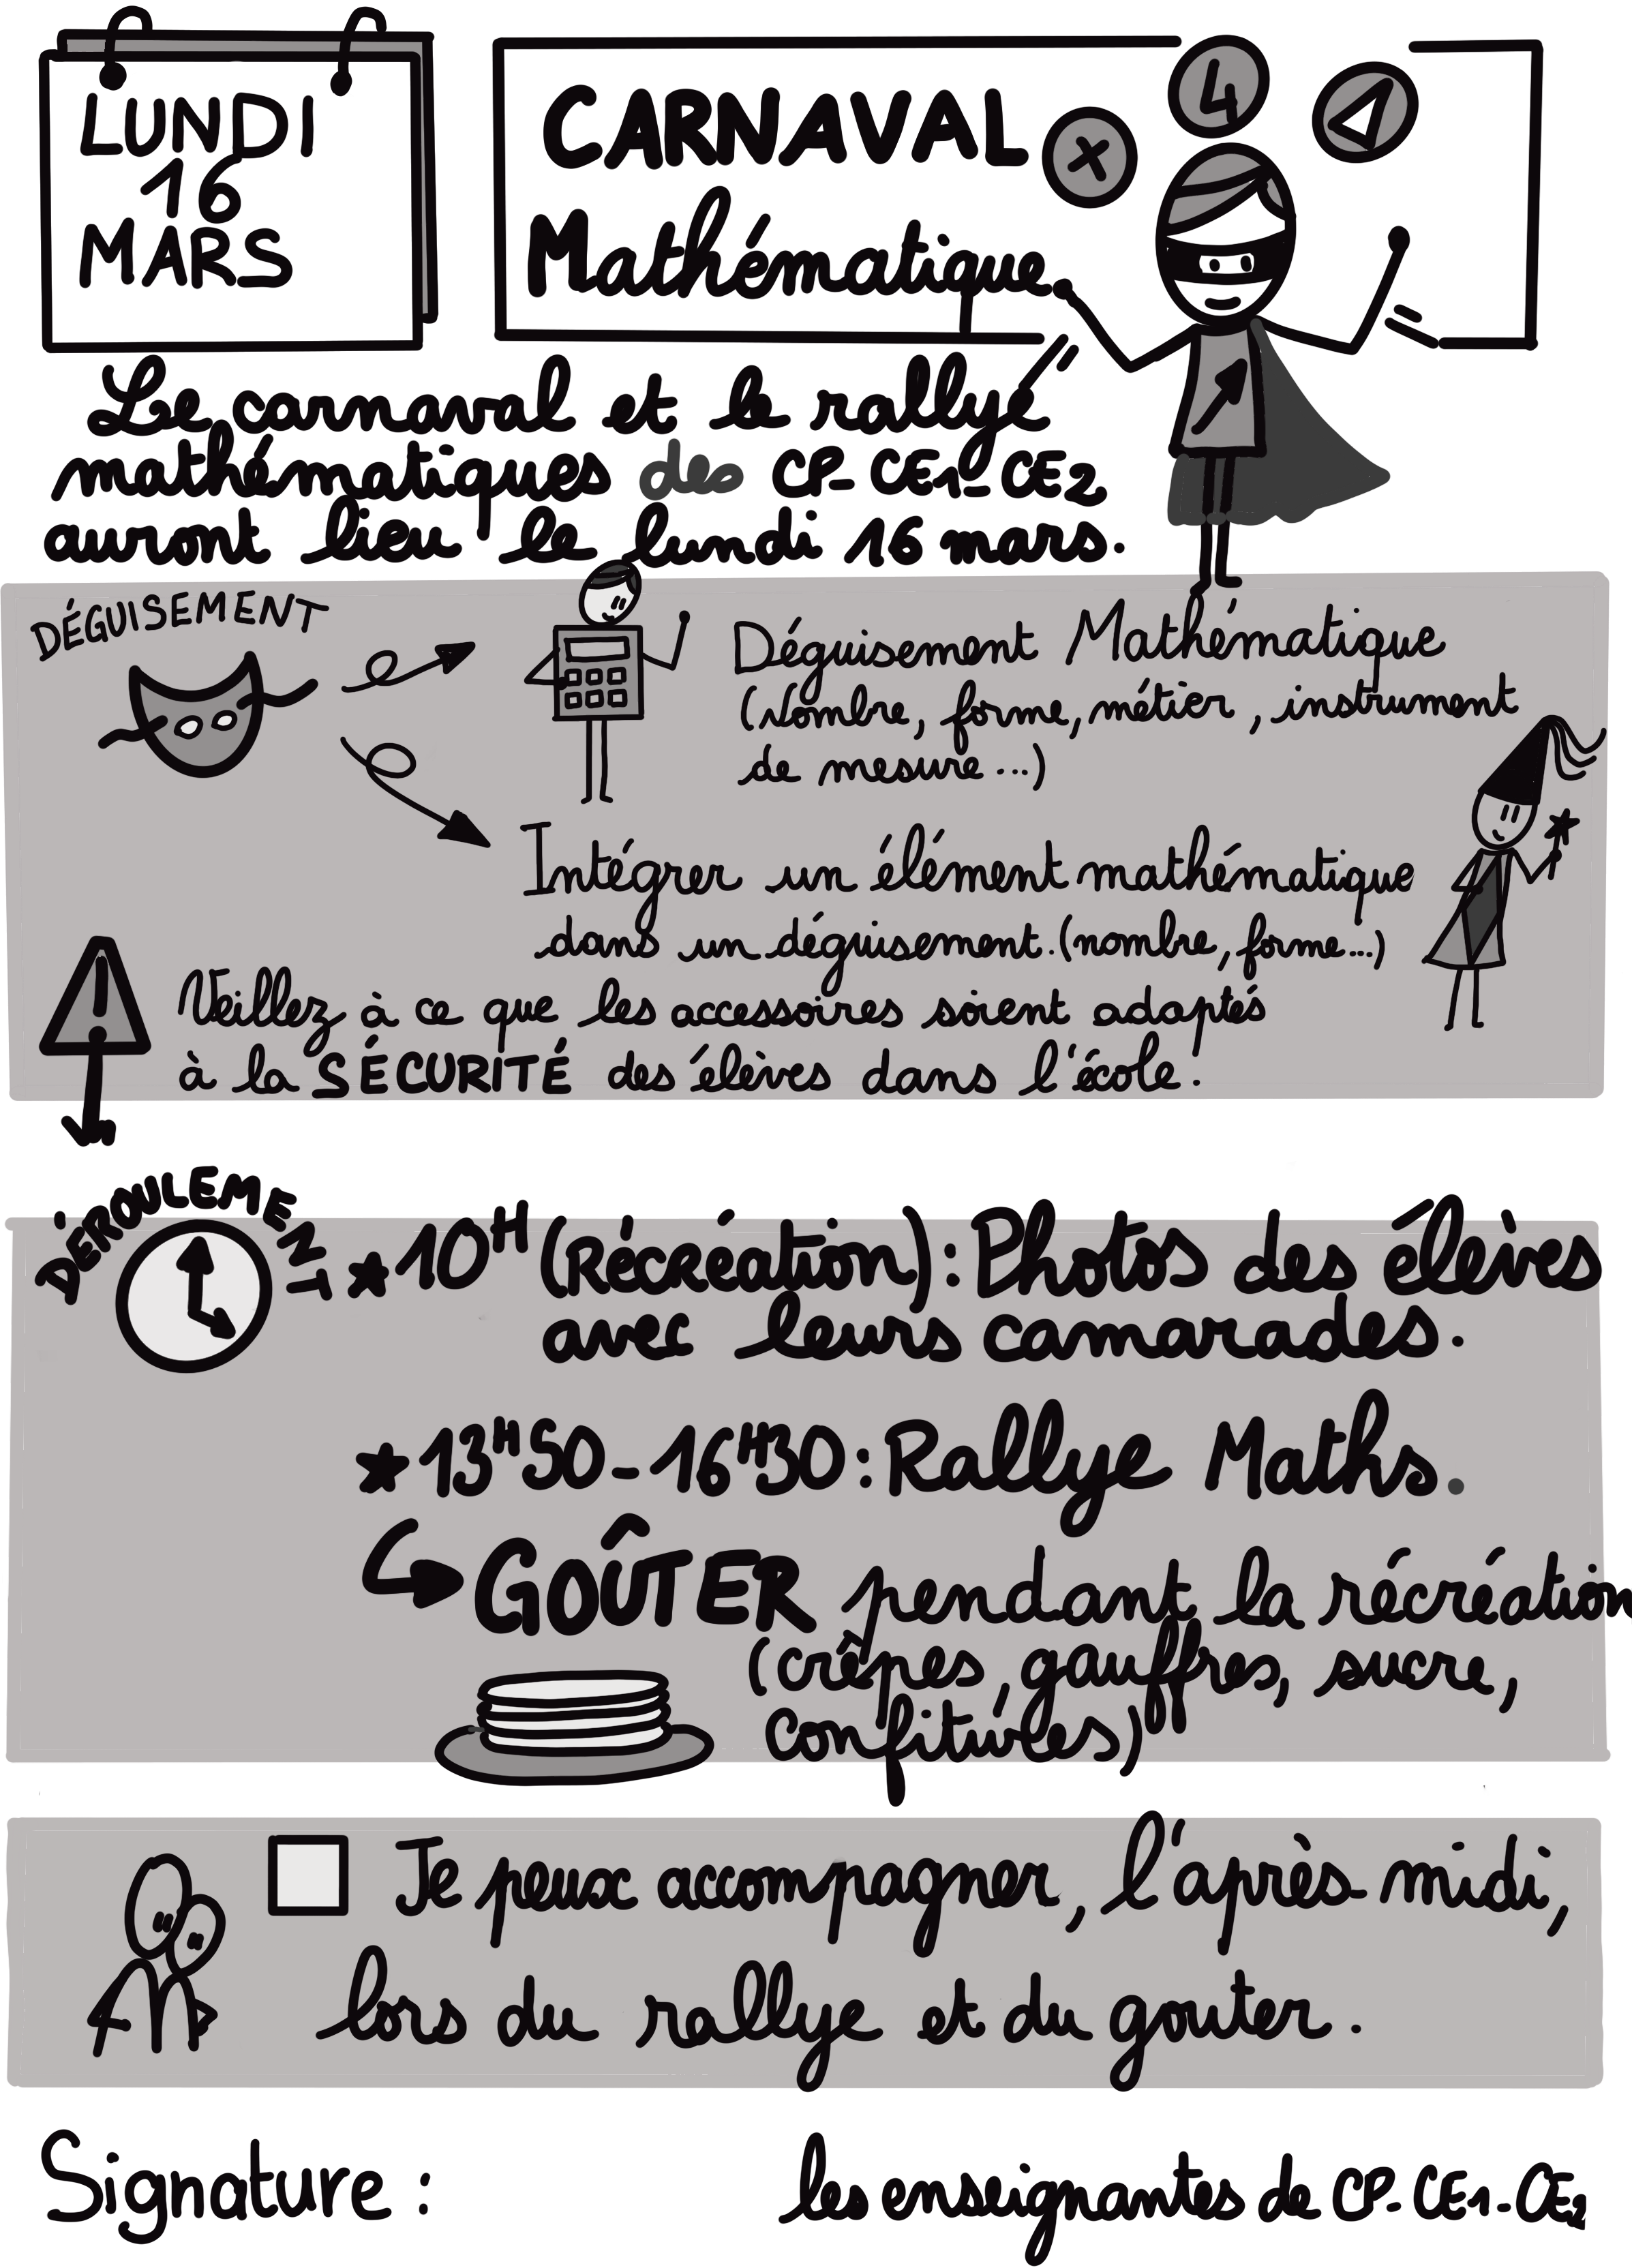 LUNDI
16
MARS
CARNAVAL
Mathématique
x
4
Le carnaval et le rallye
mathématiques des CP-CE1-CE2
auront lieu le lundi 16 mars.
DÉGUISEMENT
Déguisement Mathématique
(Nombre, forme, métier, instrument
de mesure...)
Intégrer un élément mathématique
dans un déguisement.(nombre, forme...)
Veillez à ce que les accessoires soient adaptés
à la SÉCURITÉ des élèves dans l'école.
DÉROULEMENT
10H (Récréation): Photos des élèves
avec leurs camarades.
13H50-16H30: Rallye Maths.
GOÛTER pendant la récréation
(crêpes, gauffres, sucre,
confitures)
Je peux accompagner, l'après-midi,
lors du rallye et du gouter.
Signature :
les enseignantes de CP-CE1-CE2